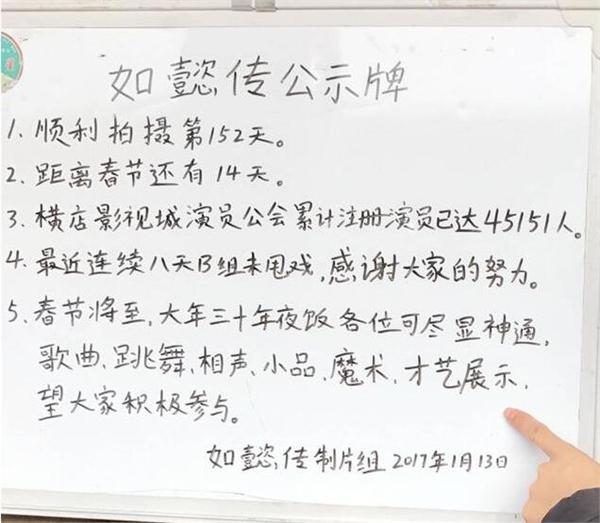 如懿传公示牌
1、顺利拍摄第152天。
2、距离春节还有14天。
3、横店影视城演员公会累计注册演员已达45151人。
4、最近连续八天B组未甩戏,感谢大家的努力。
5、春节将至,大年三十年夜饭各位可尽显神通,
歌曲、跳舞、相声、小品、魔术、才艺展示,
望大家积极参与。
如懿传制片组 2017年1月13日